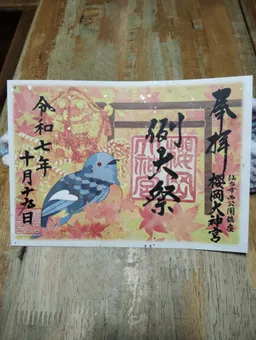 奉拝
仙台西公園鎮座
櫻岡大神宮
例大祭
櫻岡
大神宮
令和七年
十月十日